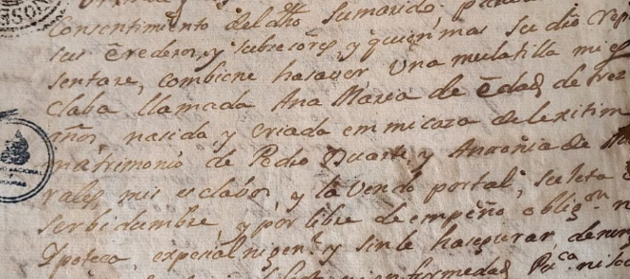 Consentimiento del dho su marido, para
sus Erederos, y subsesores, y quien mas su dro rep
sentare, combiene hasaver Una mulatilla mi es
claba llamada Ana Maria de Edad de trez
años nasida y criada em mi caza de lexitim
matrimonio de Pedro Duarte, y Antonia de
rales mis esclabos, y la vendo por tal, sujeta
serbidumbre, y por libre de empeño oblig.on
Ypoteca, espesial ni gen.l y sin le hasegurar de
enfermedad p.ca ni